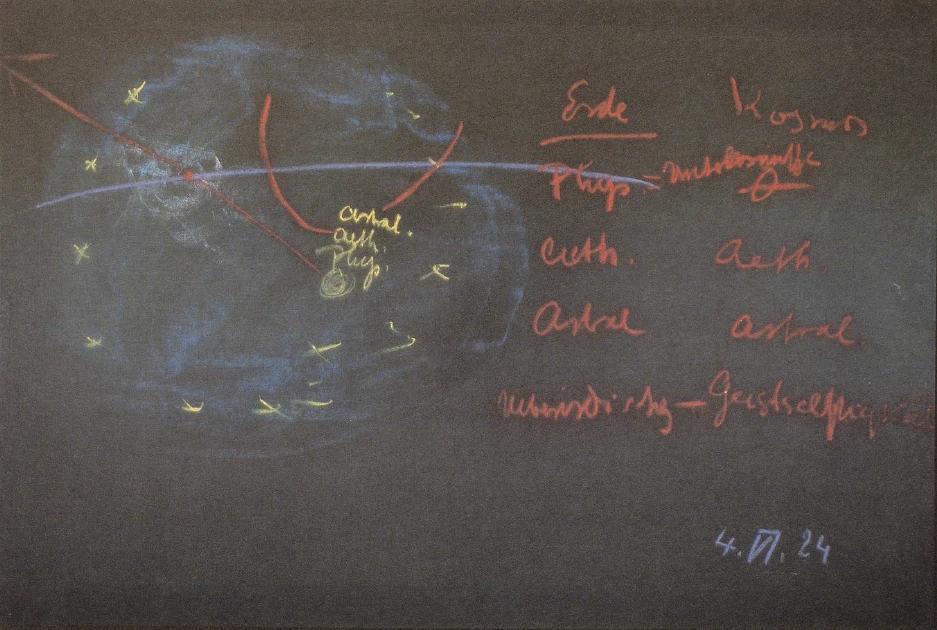 astral.
aeth.
Phys.
Erde Kosmos
Phys –
aeth. Aeth.
Astral astral.
4. VI. 24